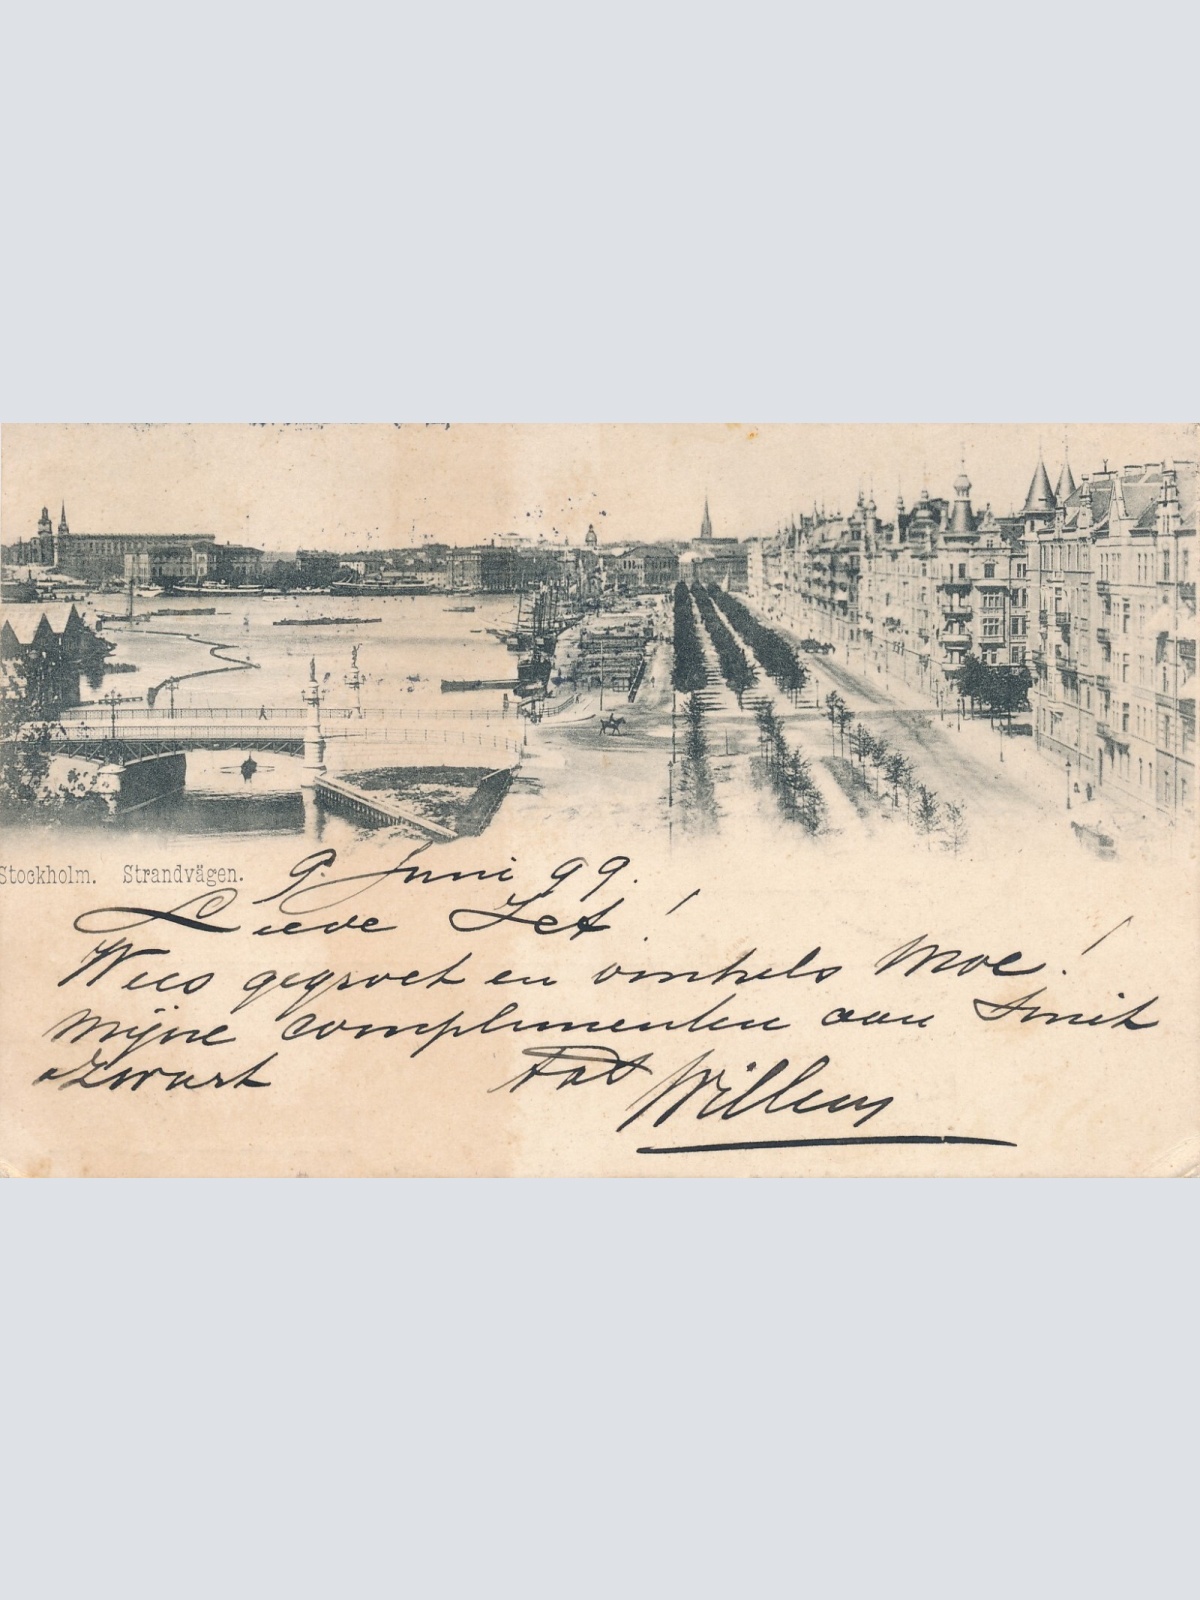 Stockholm. Strandvägen.
9. Juni 99.
Lieve Jet!
Wees gegroet en omhels Moe!
Mijne complimenten aan Smit
Zwart Willem